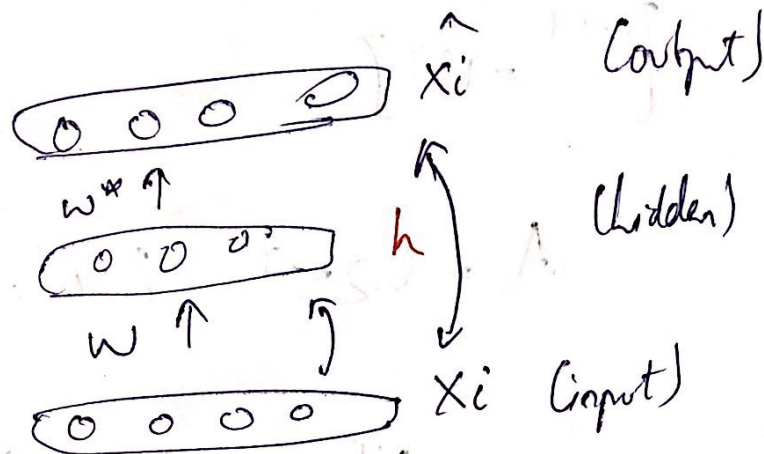 x̂i (output)
w* ↑
h (hidden)
W ↑
Xi (input)